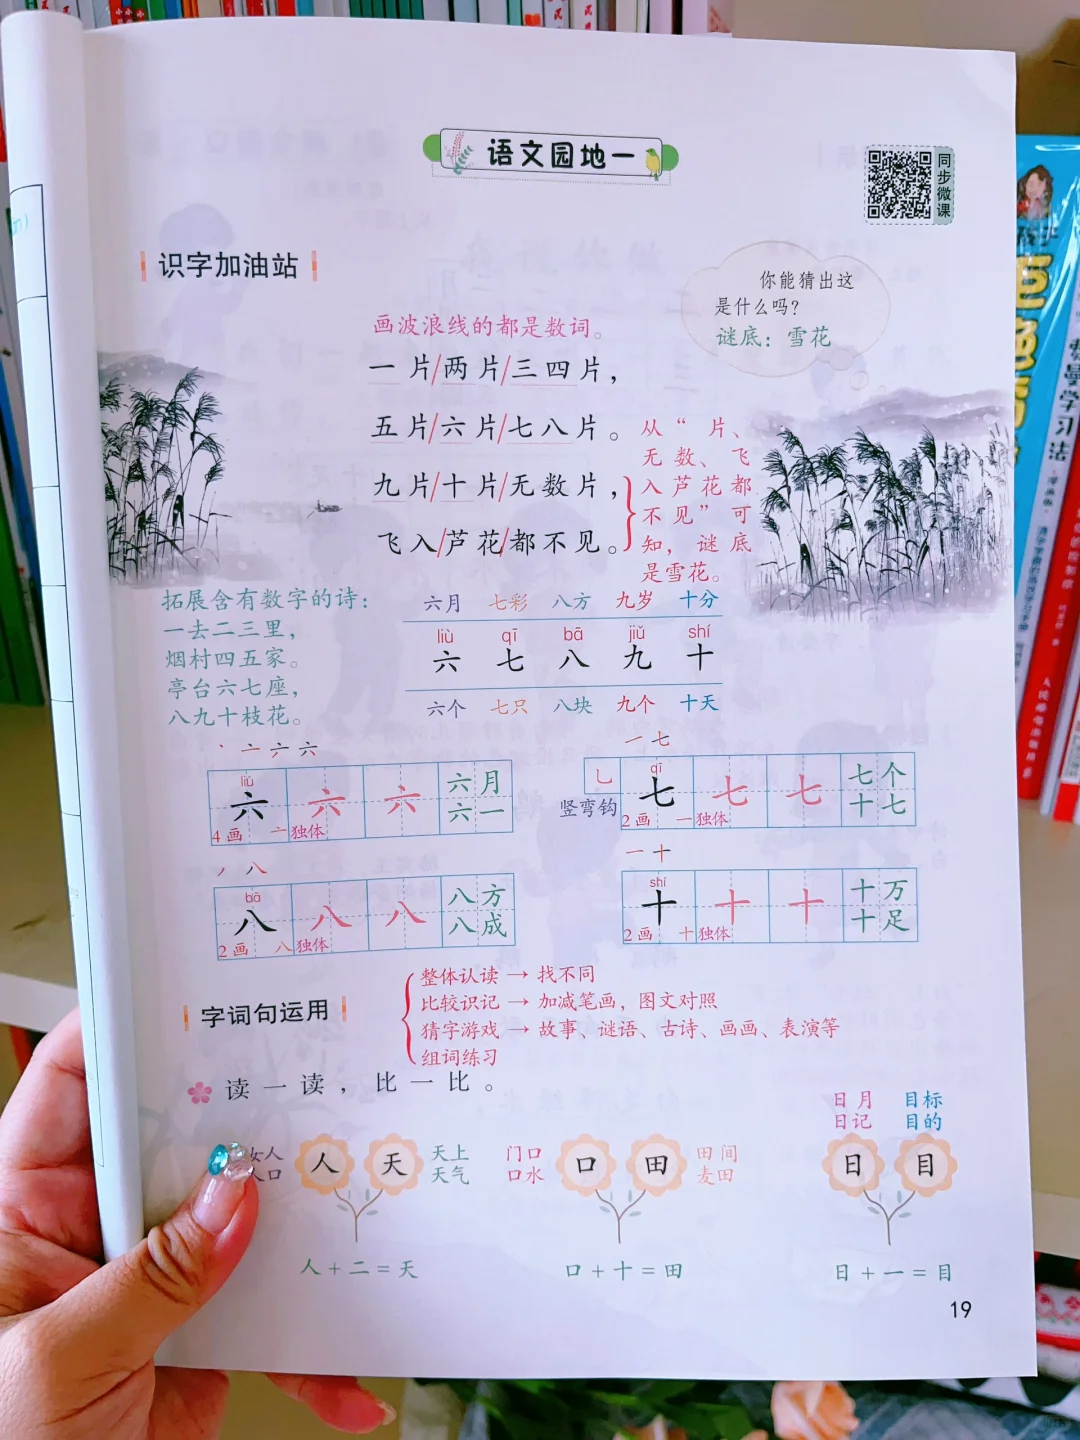 语文园地一
同步微课
识字加油站
你能猜出这
是什么吗？
谜底：雪花
画波浪线的都是数词。
一片/两片/三四片，
五片/六片/七八片。
九片/十片/无数片，
飞入/芦花/都不见。
从“片、
无数、飞
入芦花都
不见”可
知，谜底
是雪花。
拓展含有数字的诗：
一去二三里，
烟村四五家。
亭台六七座，
八九十枝花。
六月 七彩 八方 九岁 十分
liù qī bā jiǔ shí
六 七 八 九 十
六个 七只 八块 九个 十天
丶 亠 六 六
liù
六 六 六 六月
六一
4画 亠 独体
一 七
乚 竖弯钩
qī
七 七 七 七个
十七
2画 一 独体
丿 八
bā
八 八 八 八方
八成
2画 八 独体
一 十
shí
十 十 十 十万
十足
2画 十 独体
字词句运用
整体认读 → 找不同
比较识记 → 加减笔画，图文对照
猜字游戏 → 故事、谜语、古诗、画画、表演等
组词练习
读一读，比一比。
日月 目标
日记 目的
女人 人 天 天上
人口 天气
门口 口 田 田间
口水 麦田
日 目
人+二=天 口+十=田 日+一=目
19
费曼学习法